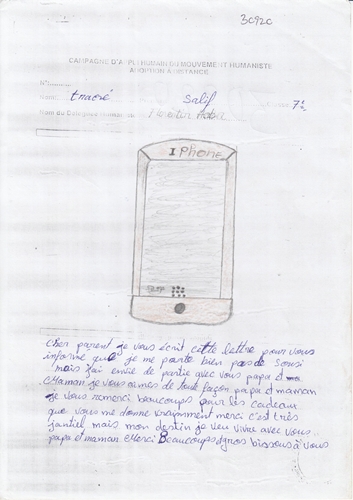 30920
CAMPAGNE D'APPUI HUMAIN DU MOUVEMENT HUMANISTE
ADOPTION A DISTANCE
N°:..........
Nom: traoré Salif 7e
Nom du Collegien
IPhone
Cher parent je vous écrit cette lettre pour vous
informe que je me porte bien pas de sousi
mais j'ai envie de partie avec vous papa et
Maman je vous aimes de toute façon papa et maman
je vous remerci beaucoups pour les cadeaux
que vous me donne vraimment merci c'est très
jantiel mais mon destin je veu vivre avec vous
papa et maman Merci Beaucoups gros bissous à vous